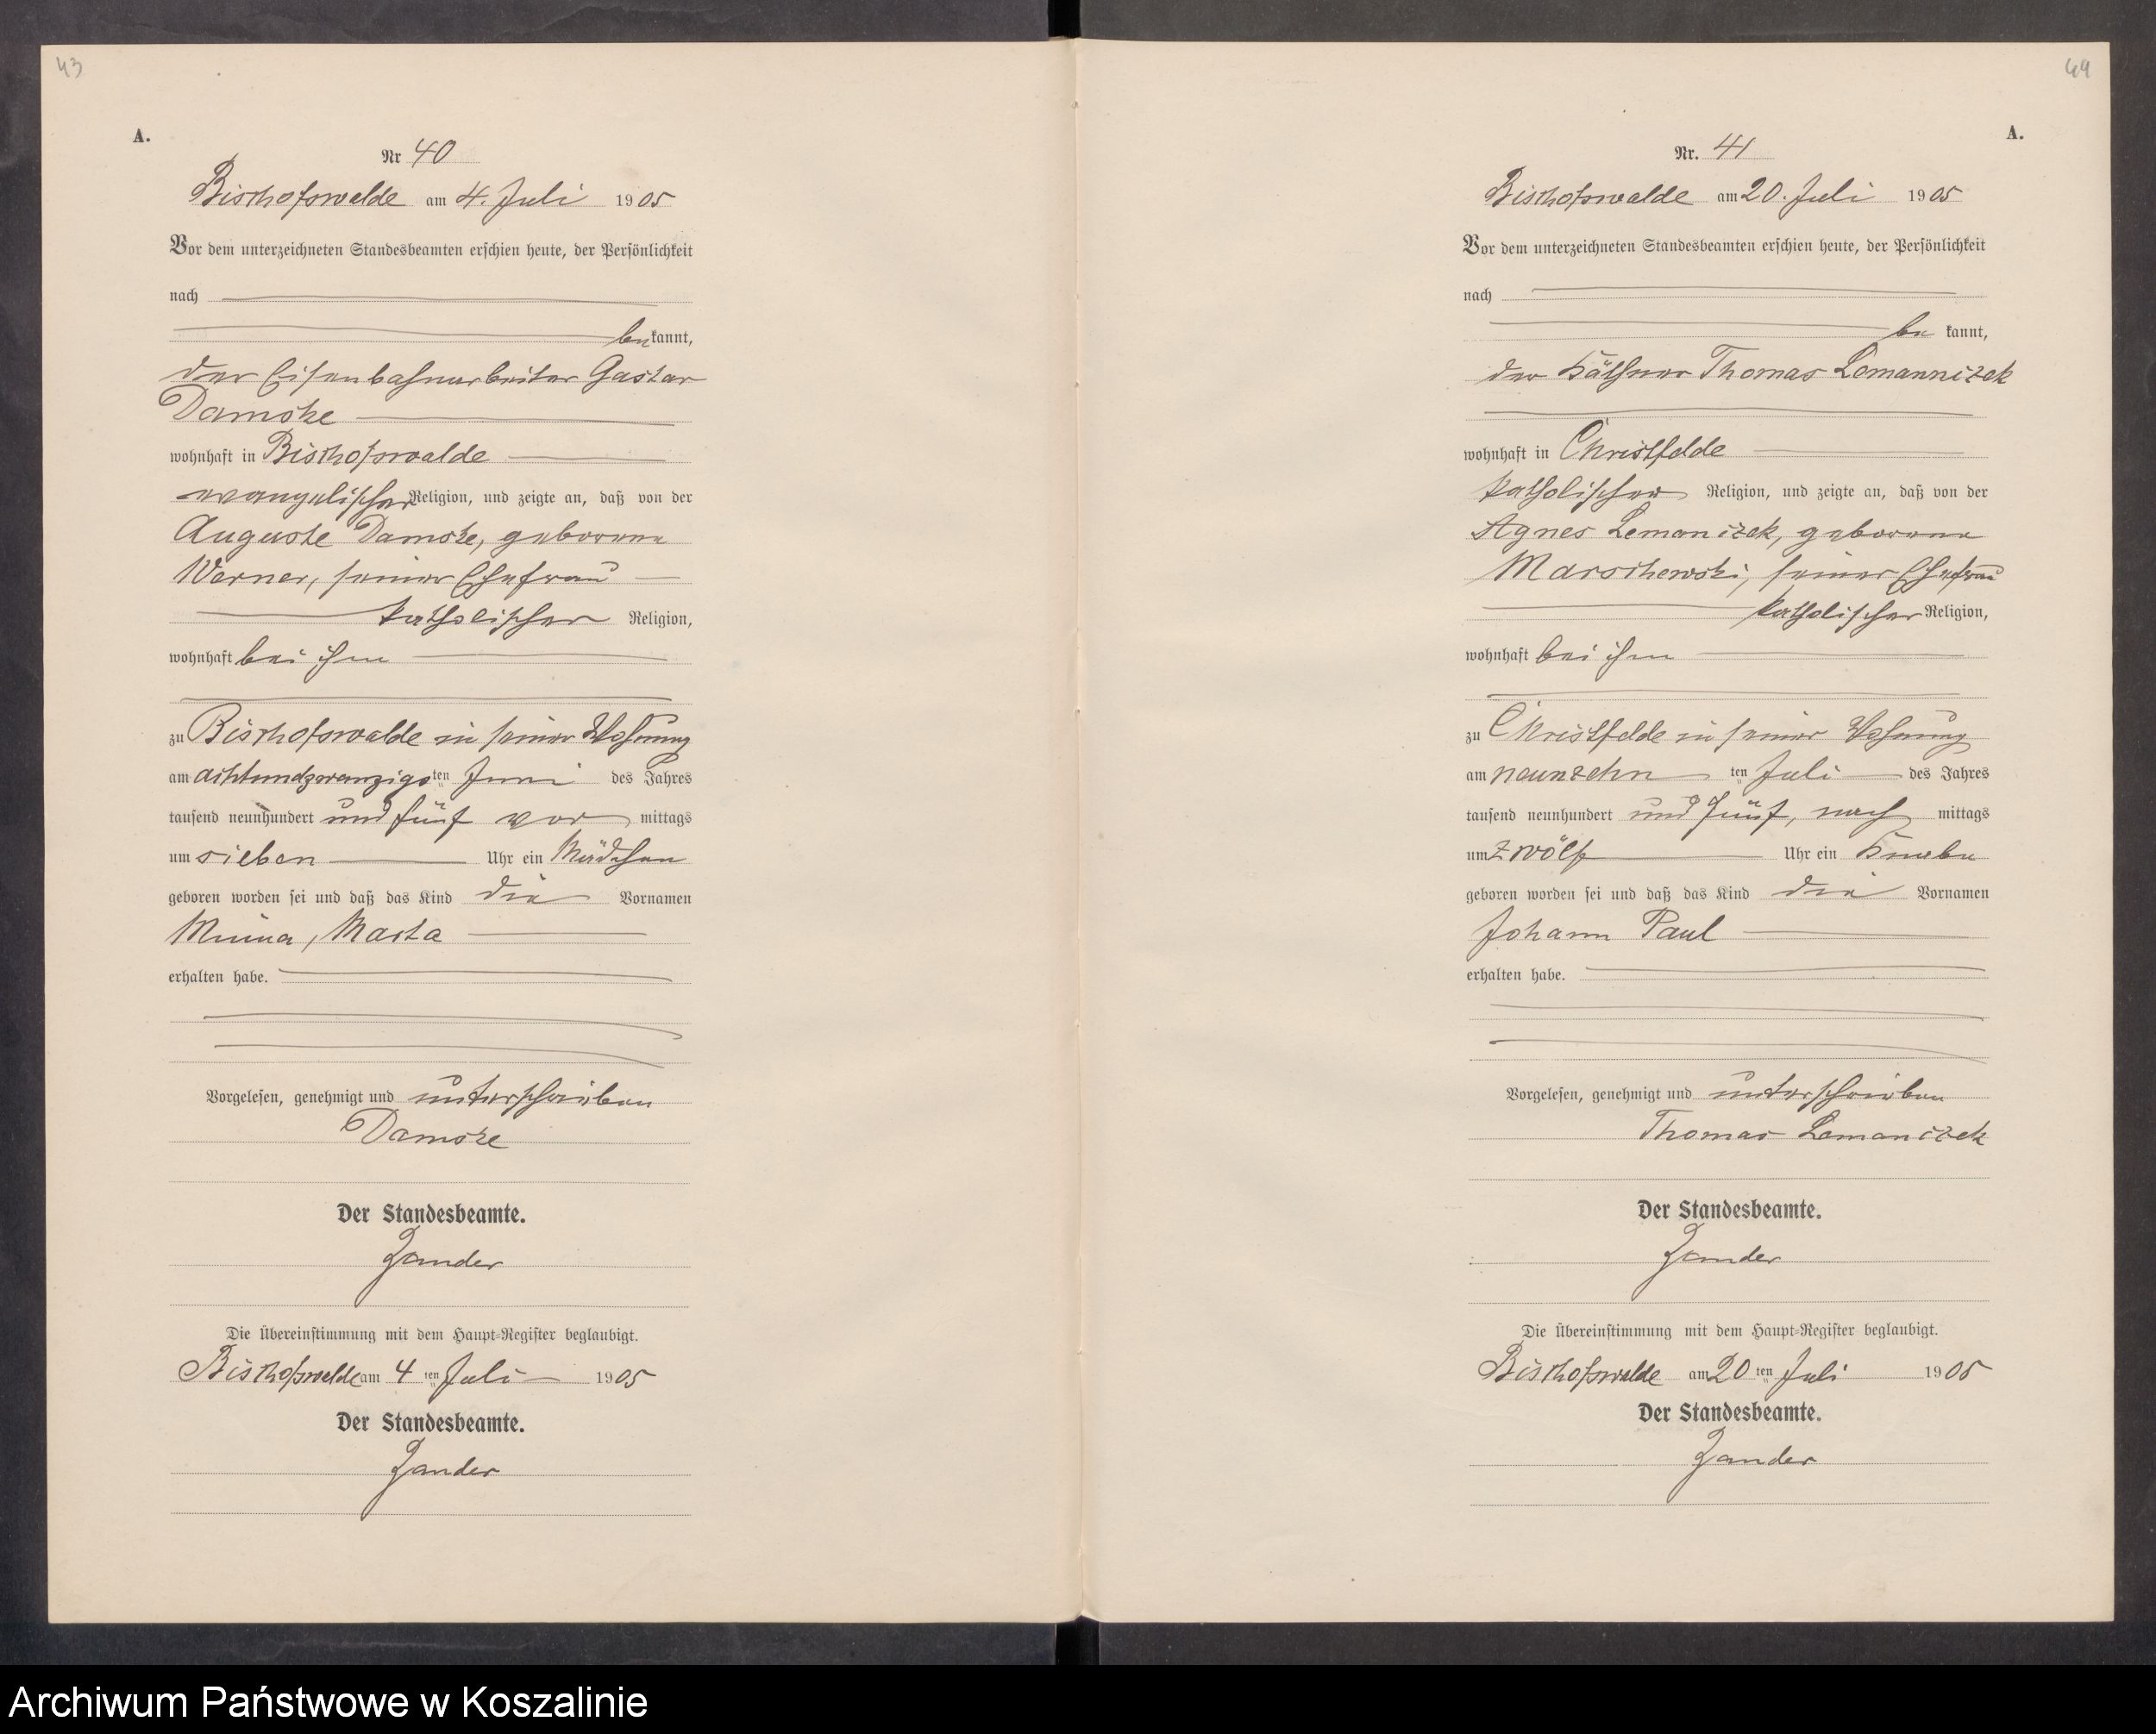 43
A.
Nr 40
Bischofswalde am 4. Juli 1905
Vor dem unterzeichneten Standesbeamten erschien heute, der Persönlichkeit
nach
bekannt,
der Eisenbahnarbeiter Gastav
Damske
wohnhaft in Bischofswalde
evangelischer Religion, und zeigte an, daß von der
Auguste Damske, geborene
Werner, seiner Ehefrau
katholischer Religion,
wohnhaft bei ihm
zu Bischofswalde in seiner Wohnung
am achtundzwanzigsten Juni des Jahres
tausend neunhundert und fünf vor mittags
um sieben Uhr ein Mädchen
geboren worden sei und daß das Kind die Vornamen
Minna, Marta
erhalten habe.
Vorgelesen, genehmigt und unterschrieben
Damske
Der Standesbeamte.
Zander
Die Übereinstimmung mit dem Haupt-Register beglaubigt.
Bischofswalde am 4 ten Juli 1905
Der Standesbeamte.
Zander
44
A.
Nr. 41
Bischofswalde am 20. Juli 1905
Vor dem unterzeichneten Standesbeamten erschien heute, der Persönlichkeit
nach
be kannt,
der Käthner Thomas Lemannizek
wohnhaft in Christfelde
katholischer Religion, und zeigte an, daß von der
Agnes Lemanizek, geborene
Marschewski, seiner Ehefrau
katholischer Religion,
wohnhaft bei ihm
zu Christfelde in seiner Wohnung
am neunzehn ten Juli des Jahres
tausend neunhundert und fünf, nach mittags
um zwölf Uhr ein Knabe
geboren worden sei und daß das Kind die Vornamen
Johann Paul
erhalten habe.
Vorgelesen, genehmigt und unterschrieben
Thomas Lemanizek
Der Standesbeamte.
Zander
Die Übereinstimmung mit dem Haupt-Register beglaubigt.
Bischofswalde am 20 ten Juli 1905
Der Standesbeamte.
Zander
Archiwum Państwowe w Koszalinie